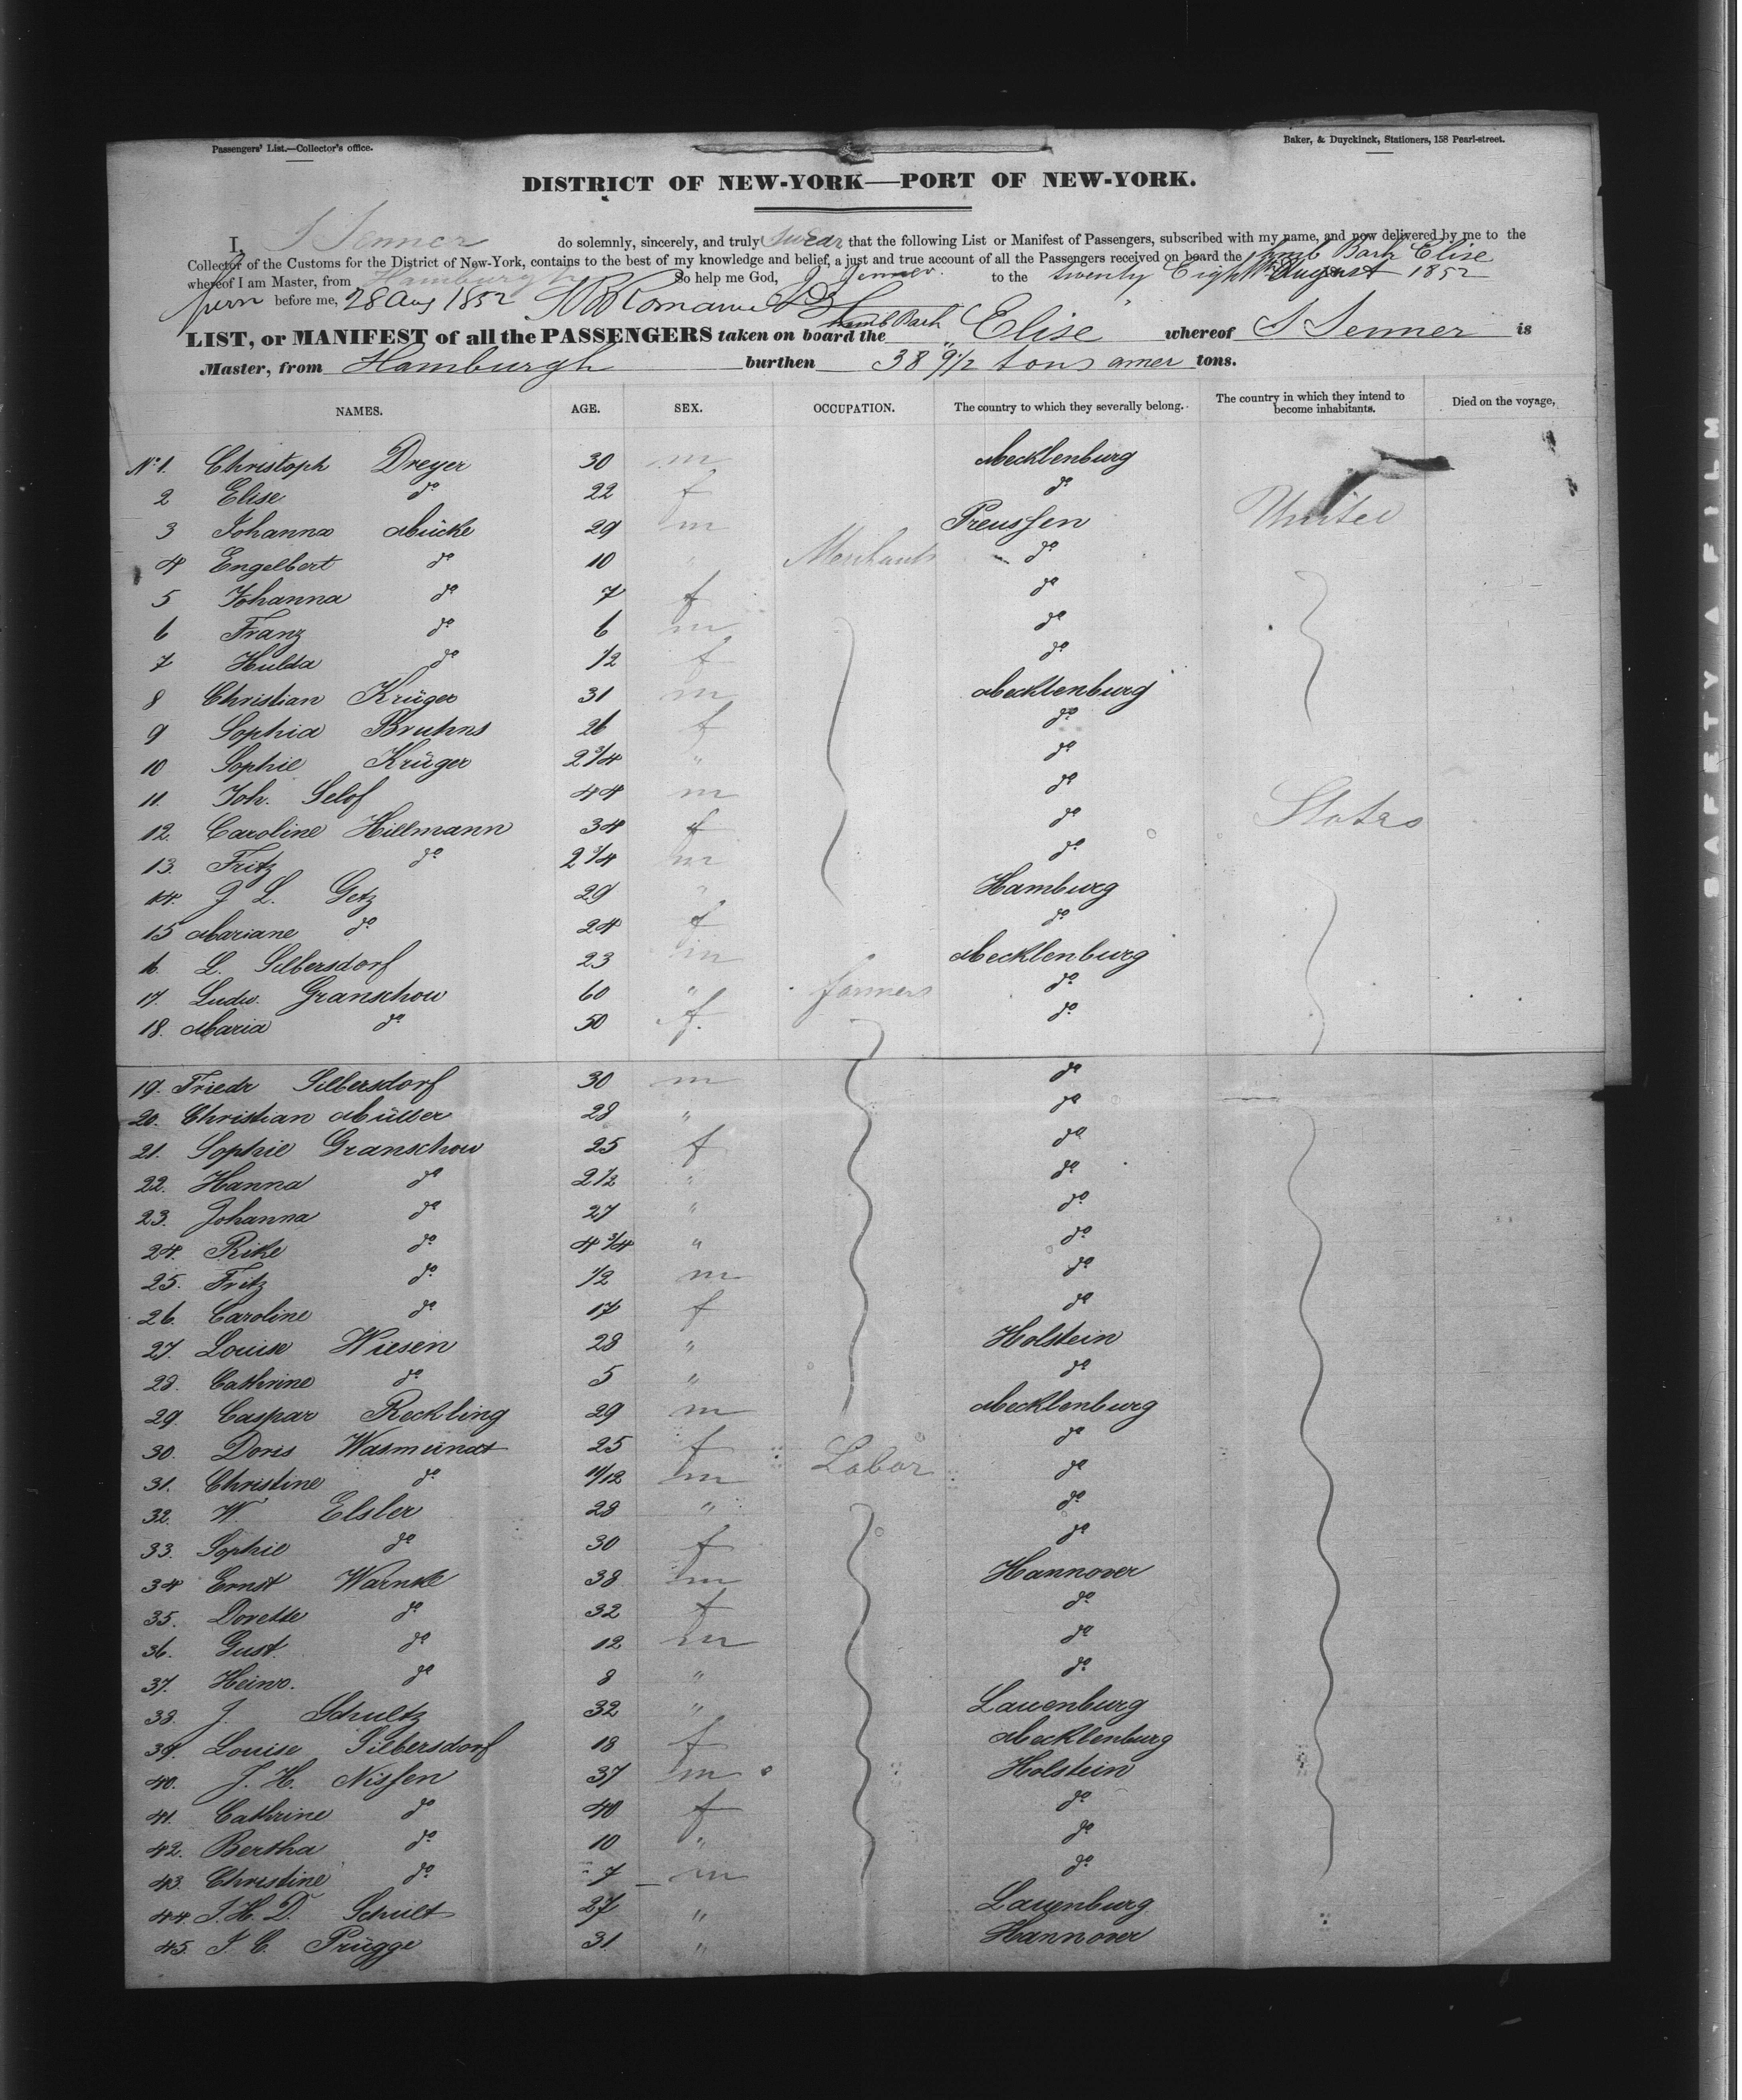 Passengers' List.—Collector's office.
Baker, & Duyckinck, Stationers, 158 Pearl-street.
DISTRICT OF NEW-YORK—PORT OF NEW-YORK.
I, J Jenner do solemnly, sincerely, and truly swear that the following List or Manifest of Passengers, subscribed with my name, and now delivered by me to the
Collector of the Customs for the District of New-York, contains to the best of my knowledge and belief, a just and true account of all the Passengers received on board the Hamb Bark Elise
whereof I am Master, from Hamburgh So help me God, J Jenner. to the twenty Eighth August 1852
before me, 28 Aug 1852
LIST, or MANIFEST of all the PASSENGERS taken on board the Hamb Bark "Elise" whereof J Jenner is
Master, from Hamburgh burthen 38 9 1/2 tons amer tons.
NAMES. AGE. SEX. OCCUPATION. The country to which they severally belong. The country in which they intend to become inhabitants. Died on the voyage,
No 1. Christoph Dreyer 30 m Mecklenburg
2 Elise do 22 f do
3 Johanna Mücke 29 m Preussen United
4 Engelbert do 10 " Merchants do
5 Johanna do 7 f do
6 Franz do 6 m do
7 Hulda do 1/2 f do
8 Christian Krüger 31 m Mecklenburg
9 Sophia Bruhns 26 f do
10 Sophie Krüger 2 3/4 " do
11. Joh. Selof 44 m do States
12. Caroline Hillmann 34 f do
13. Fritz do 2 3/4 m do
14. J L. Getz 29 " Hamburg
15 Mariane do 24 f do
16. L. Silbersdorf 23 m Mecklenburg
17. Ludw. Granschow 60 " farmers do
18. Maria do 50 f. do
19. Friedr Silbersdorf 30 m do
20. Christian Müller 28 " do
21. Sophie Granschow 25 f do
22. Hanna do 2 1/2 " do
23. Johanna do 27 " do
24. Rike do 4 3/4 " do
25. Fritz do 1/2 m do
26. Caroline do 17 f do
27. Louise Wiesen 28 " Holstein
28. Cathrine do 5 " do
29. Caspar Reckling 29 m Mecklenburg
30. Doris Wasmundt 25 f do
31. Christine do 11/12 m Labor do
32. W. Elsler 28 " do
33. Sophie do 30 f do
34 Ernst Warnke 38 m Hannover
35. Dorette do 32 f do
36. Gust. do 12 m do
37. Heinr. do 8 " do
38. J. Schultz 32 " Lauenburg
39. Louise Silbersdorf 18 f Mecklenburg
40. J. H. Nissen 37 m Holstein
41. Cathrine do 40 f do
42. Bertha do 10 " do
43. Christine do 7 m do
44. J. H. D. Schult 27 " Lauenburg
45. J. C. Prügge 31 " Hannover
SAFETY A FILM